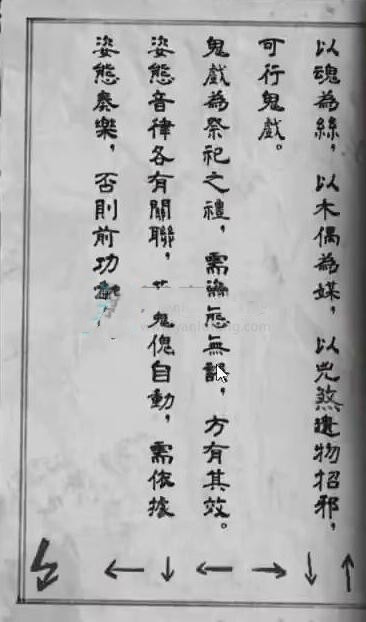 以魂為絲，以木偶為媒，以兇煞遺物招邪，
可行鬼戲。
鬼戲為祭祀之禮，需態無誤，方有其效。
姿態音律各有關聯，鬼傀自動，需依據
姿態奏樂，否則前功